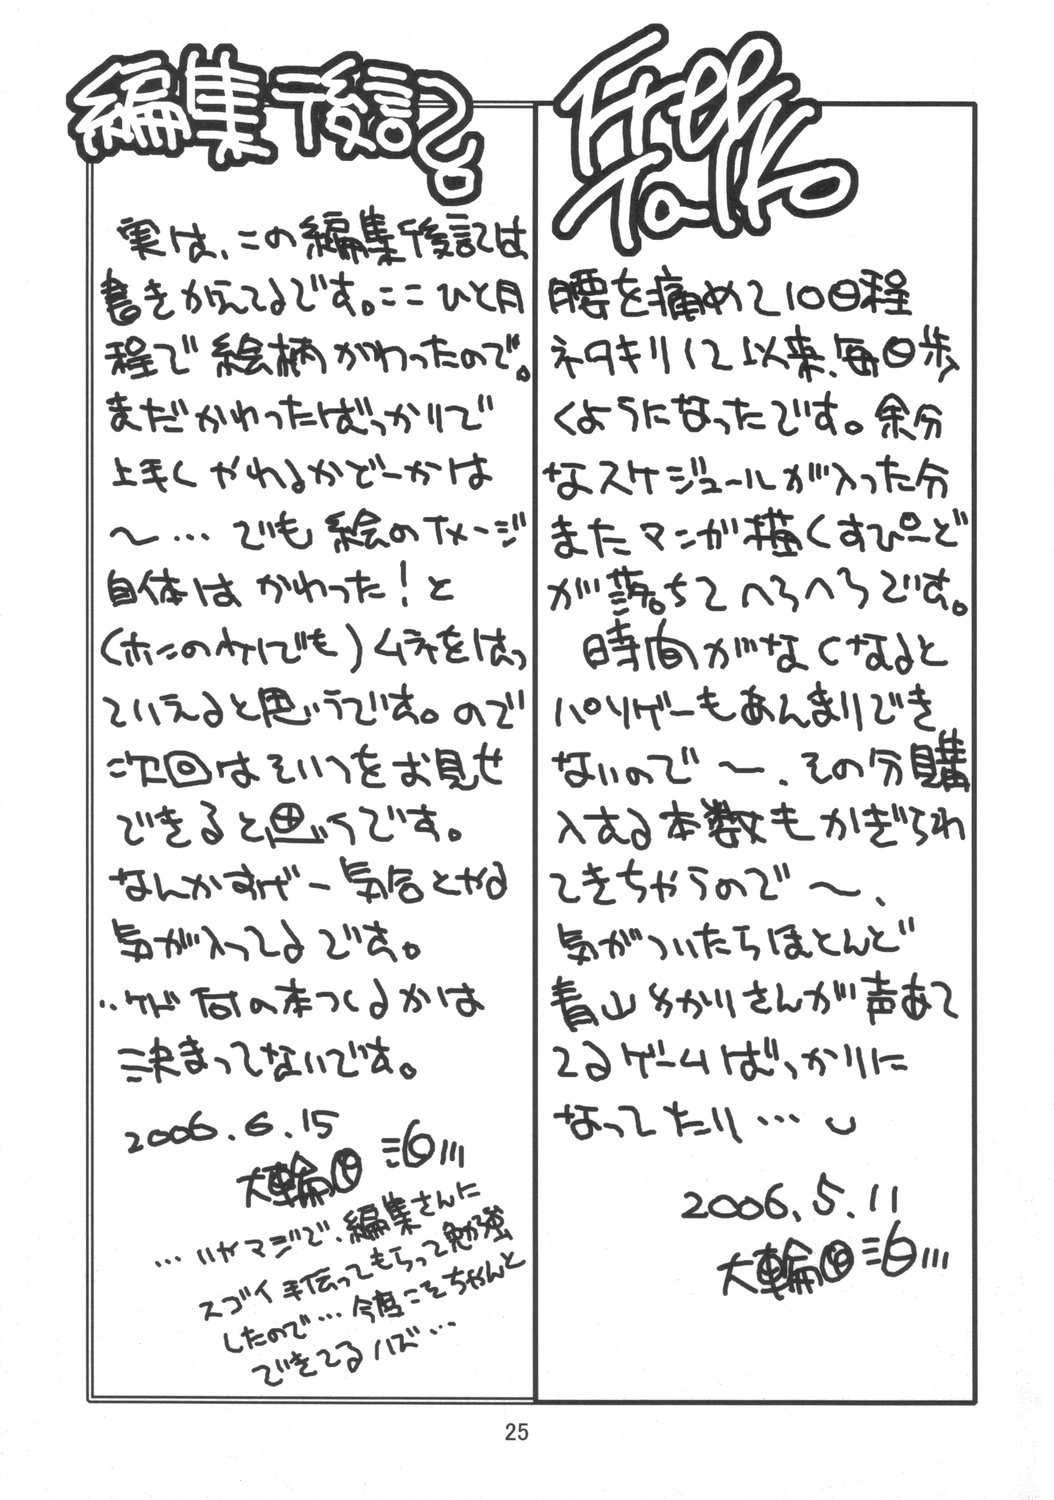 編集後記
実は、この編集後記は
書きかえてるです。ここひと月
程で絵柄がわったので。
まだかわったばっかりで
上手くやれるかどーかは
〜…でも絵のイメージ
自体はかわった!と
(ホンのウケでも)ムネをはっ
ていえると思うです。ので
次回はそいつをお見せ
できると思うです。
なんかすげー気合とやる
気が入ってるです。
‥ケド何の本つくるかは
決まってないです。
2006.6.15
…いやマジで、編集さんに
スゴイ手伝ってもらって勉強
したので…今度こそちゃんと
できてるハズ…
Free
Talk
腰を痛めて10日程
ネタキリして以来、毎日歩
くようになったです。余分
なスケジュールが入った分
またマンガ描くすぴーど
が落ちてへろへろです。
時間がなくなると
パソゲーもあんまりでき
ないので〜、その分購
入する本数もかぎられ
てきちゃうので〜、
気がついたらほとんど
青山ゆかりさんが声あて
てるゲームばっかりに
なってたり…
2006.5.11
25